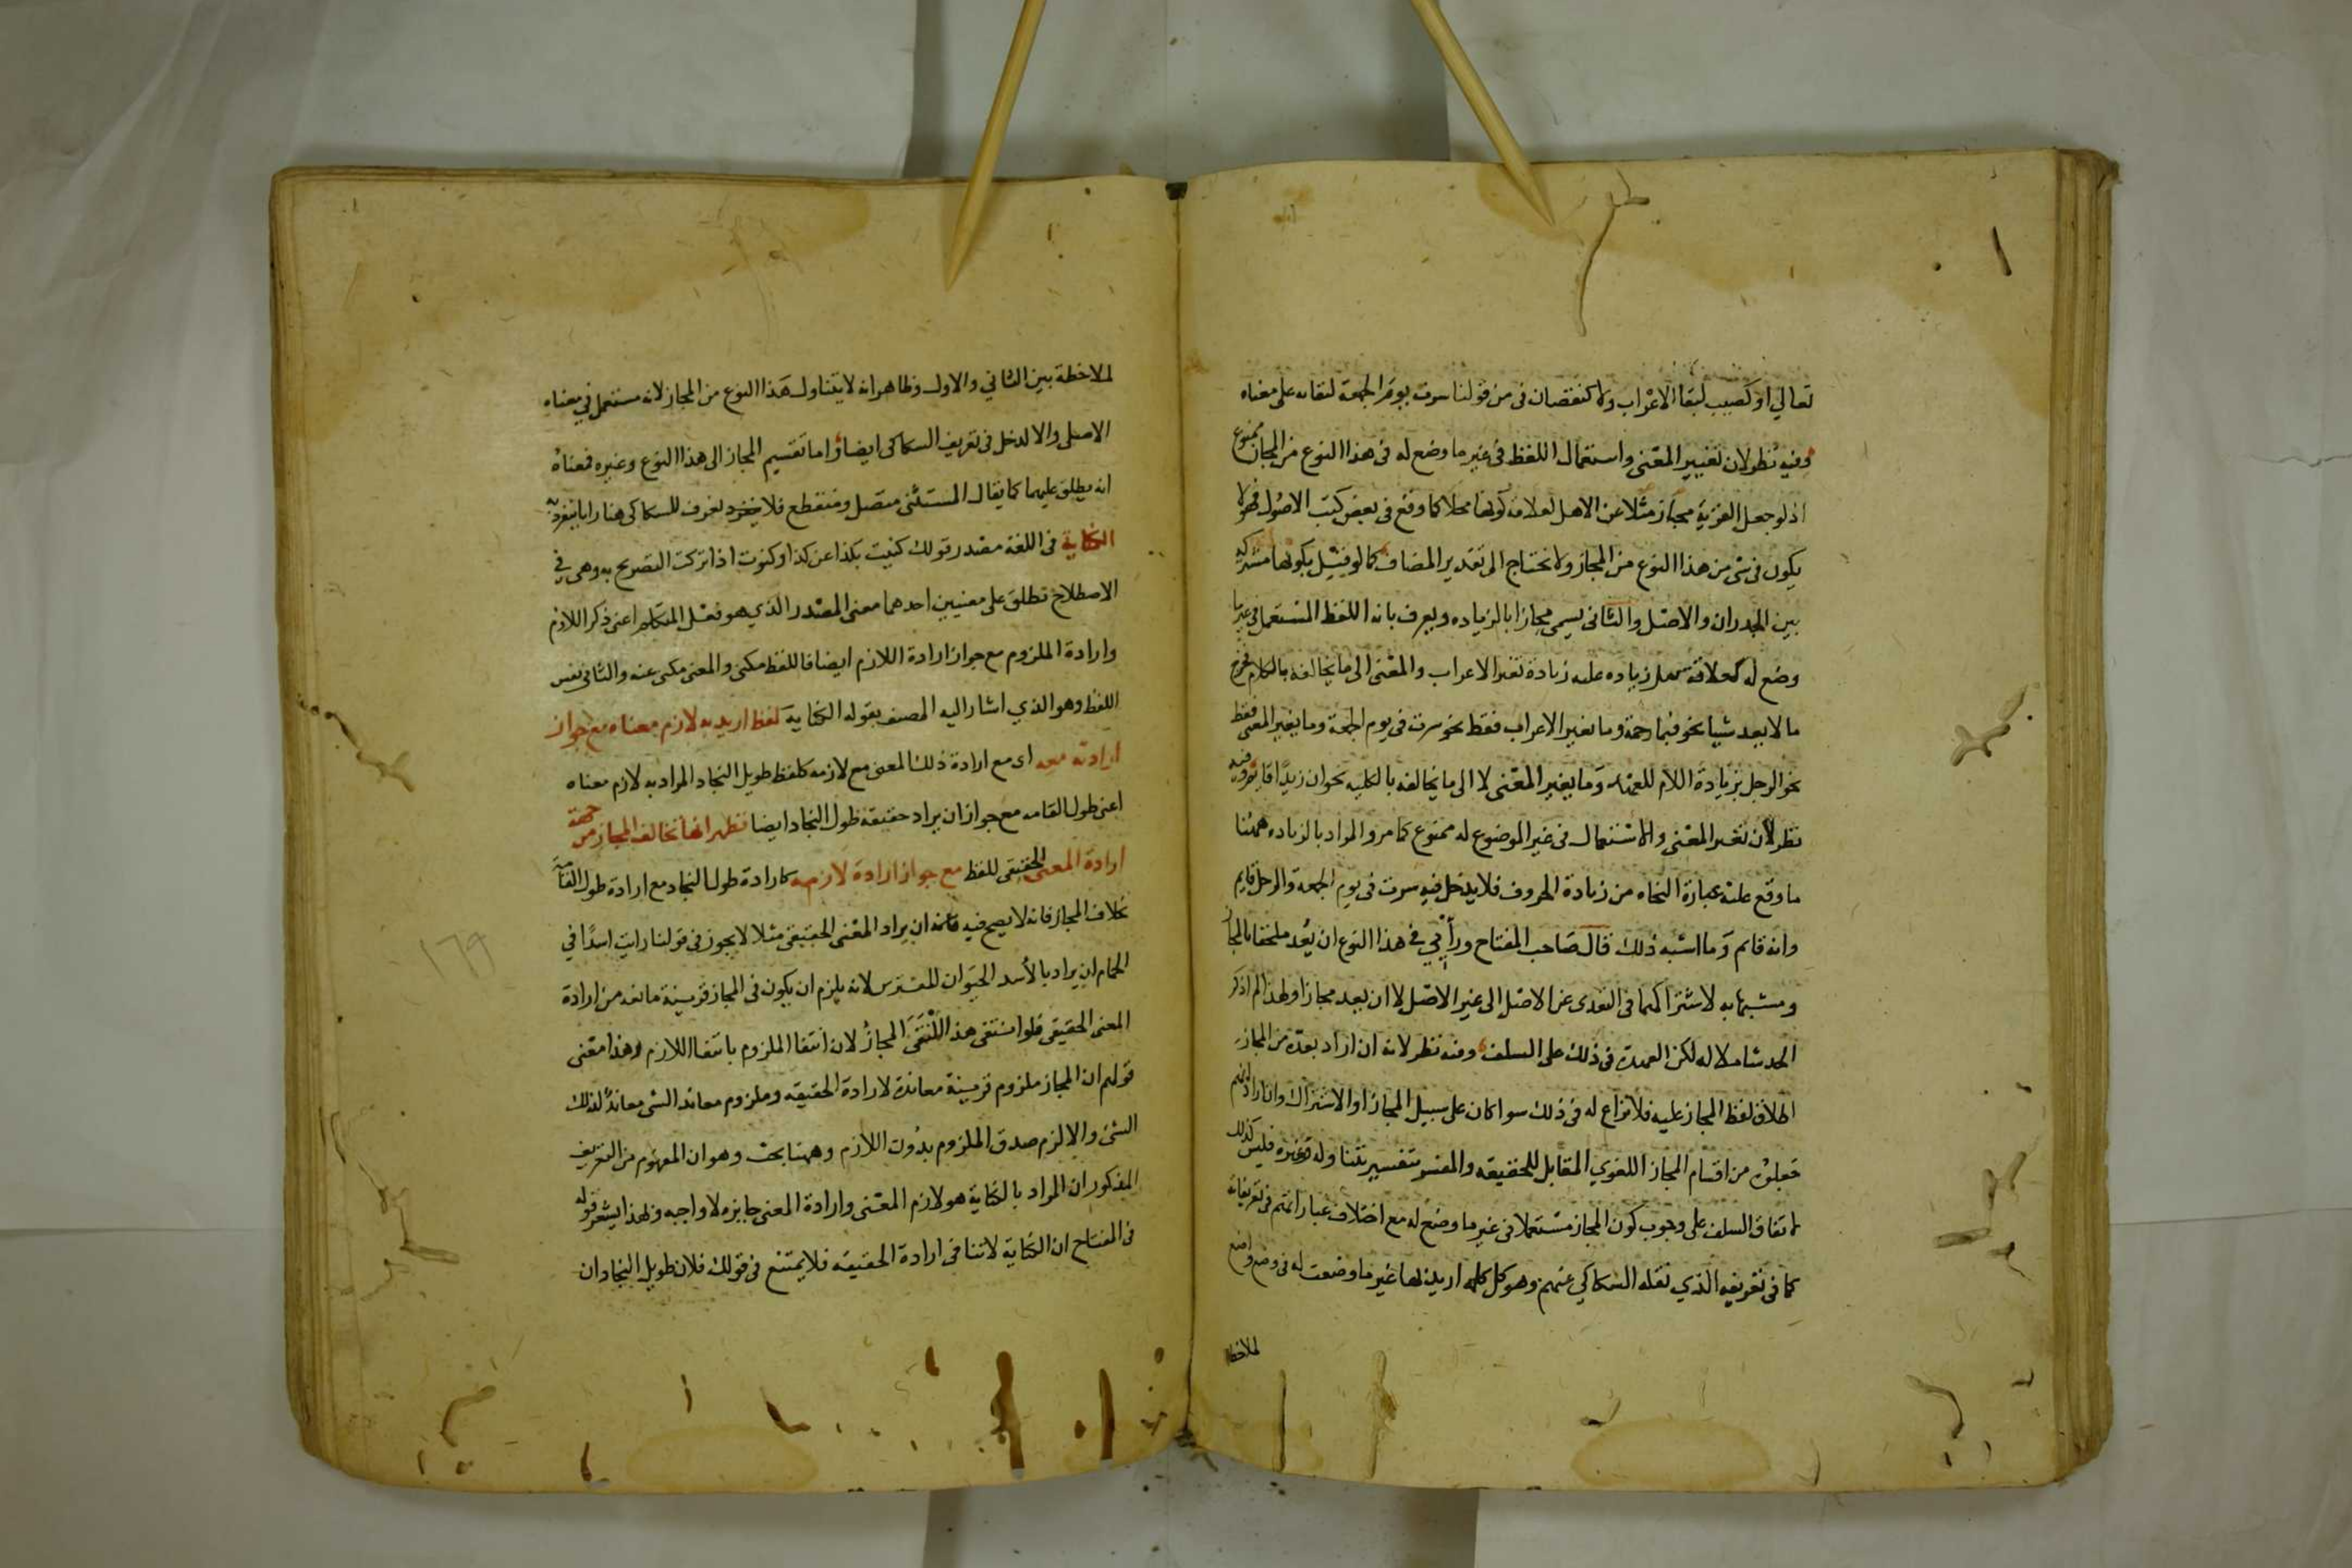 تعالي او كصيب لبقا الاعراب ولا كنقصان فى من قولنا سرت يوم الجمعة لبقائه على معناه
وفيه نظر لان تغيير المعنى واستعمال اللفظ فى غير ما وضع له فى هذا النوع من المجاز ممنوع
اذ لو جعل القرية مجاز مثلا عن الاهل لعلاقة كونها محلا كما وقع فى بعض كتب الاصول فهو لا
يكون فى شى من هذا النوع من المجاز ولا يحتاج الى تقدير المضاف كما لو قيل بكونها مشتركه
بين الجدران والاهل والثانى يسمى مجازا بالزياده ويعرف بانه اللفظ المستعمل فى غير ما
وضع له لعلاقة زياده عليه زيادة تغير الاعراب والمعنى الى ما يخالفه بالكلام فخرج
ما لا يعد شيا نحو فبما رحمة وما يغير الاعراب فقط نحو سرت فى يوم الجمعة وما يغير المعنى فقط
نحو الرجل بزيادة اللام للعهد وما يغير المعنى لا الى ما يخالفه بالكليه نحو ان زيدا قايم وفيه
نظر لان تغير المعنى والاستعمال فى غير الموضوع له ممنوع كما مر والمراد بالزياده ههنا
ما وقع عليه عبارة النحاه من زيادة الحروف فلا يدخل فيه سرت فى يوم الجمعة والرجل قايم
وانه قائم وما اشبه ذلك قال صاحب المفتاح ورأيي فى هذا النوع ان يعد ملحقا بالمجاز
ومشبها به لاشتراكهما فى التعدى عن الاصل الى غير الاصل لا ان يعد مجازا ولهذا لم اذكر
الحد شاملا له لكن العهدة فى ذلك على السلف وفيه نظر لانه ان اراد بعده من المجاز
اطلاق لفظ المجاز عليه فلا نزاع له فى ذلك سوا كان على سبيل المجاز او الاشتراك وان اراد انهم
جعلوه من اقسام المجاز اللغوي المقابل للحقيقه والمفسر بتفسير يتناوله وغيره فليس كذلك
لاتفاق السلف على وجوب كون المجاز مستعملا فى غير ما وضع له مع اختلاف عباراتهم فى تعريفاته
كما فى تعريفه الذي نقله السكاكي عنهم وهو كل كلمه اريد بها غير ما وضعت له فى وضع واضع
لملاحظة
لملاحظة بين الثاني والاول وظاهر انه لا يتناول هذا النوع من المجاز لانه مستعمل في معناه
الاصلى والا لدخل فى تعريف السكاكى ايضا واما تقسيم المجاز الى هذا النوع وغيره فمعناه
انه يطلق عليهما كما يقال المستثنى متصل ومنقطع فلا يعرف للسكاكى هنا رايا ينفرد به
الكناية فى اللغة مصدر قولك كنيت بكذا عن كذا او كنوت اذا تركت التصريح به وهى فى
الاصطلاح تطلق على معنيين احدهما معنى المصدر الذي هو فعل المتكلم اعنى ذكر اللازم
وارادة الملزوم مع جواز ارادة اللازم ايضا فاللفظ مكنى والمعنى مكنى عنه والثانى نفس
اللفظ وهو الذي اشار اليه المصنف بقوله الكناية لفظ اريد به لازم معناه مع جواز
ارادته معه اى مع ارادة ذلك المعنى مع لازمه كلفظ طويل النجاد المراد به لازم معناه
اعنى طول القامه مع جواز ان يراد حقيقة طول النجاد ايضا فظهر انها تخالف المجاز من جهة
ارادة المعنى الحقيقى للفظ مع جواز ارادة لازمه كارادة طول النجاد مع ارادة طول القامة
بخلاف المجاز فانه لا يصح فيه ان يراد المعنى الحقيقى مثلا لا يجوز فى قولنا رايت اسدًا في
الحمام ان يراد بالأسد الحيوان المفترس لانه يلزم ان يكون فى المجاز قرينة مانعه من ارادة
المعنى الحقيقى فلو انتفى هذا انتفى المجاز لان انتفا الملزوم بانتفا اللازم وهذا معنى
قولهم ان المجاز ملزوم قرينة معاندة لارادة الحقيقه وملزوم معاند الشى معاند لذلك
الشى والا لزم صدق الملزوم بدون اللازم وههنا بحث وهو ان المفهوم من التعريف
المذكور ان المراد بالكناية هو لازم المعنى وارادة المعنى جايزه لا واجبه ولهذا يشعر قوله
فى المفتاح ان الكناية لا تنافى ارادة الحقيقه فلا يمتنع فى قولك فلان طويل النجاد ان
١٦٩